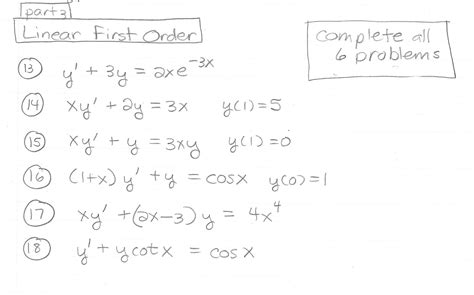 part 3
Linear First Order
Complete all
6 problems
13 y' + 3y = 2xe^-3x
14 xy' + 2y = 3x y(1)=5
15 xy' + y = 3xy y(1)=0
16 (1+x) y' + y = cosx y(0)=1
17 xy' + (2x-3) y = 4x^4
18 y' + y cotx = cosx